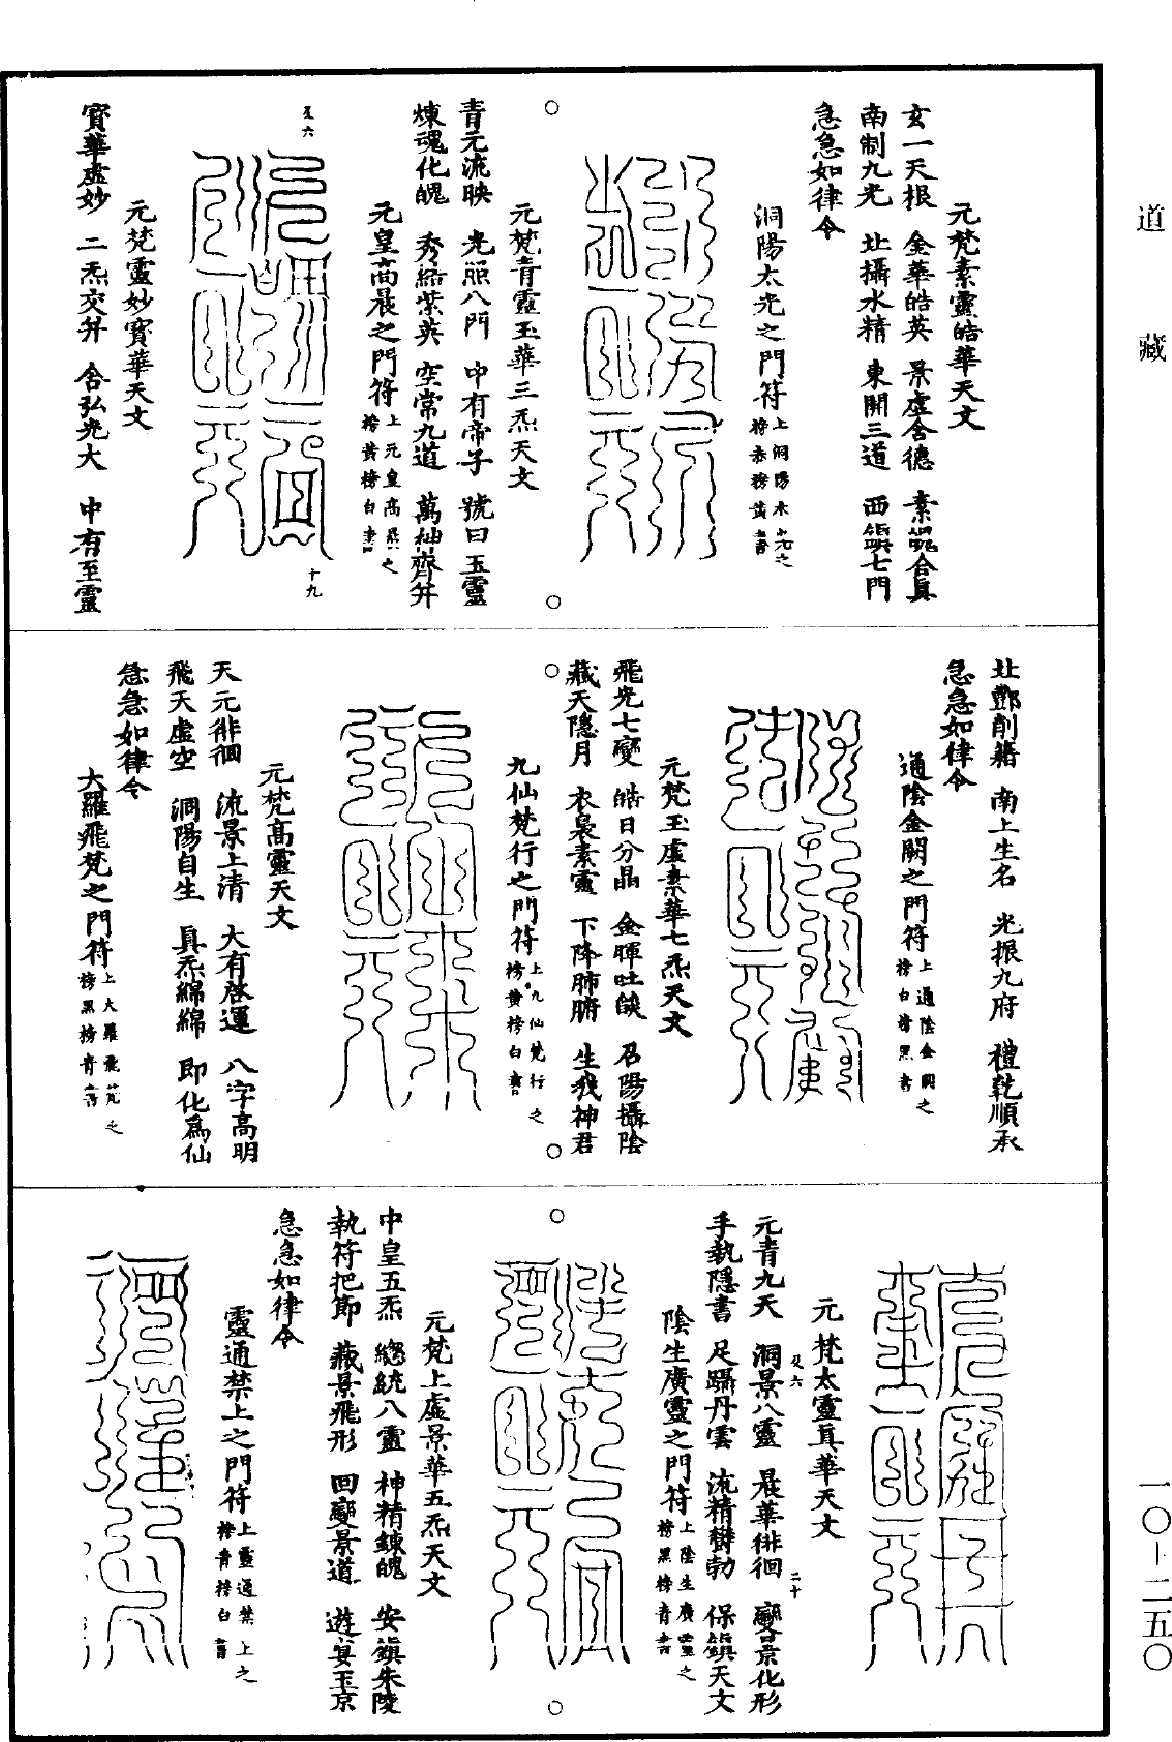 道藏
元梵素靈皓華天文
玄一天根 金華皓英 景虛含德 素靈合真
南制九光 北攝水精 東開三道 西鎮七門
急急如律令
洞陽太光之門符上洞陽太光之
榜赤榜黃書
元梵青靈玉華三炁天文
青元流映 光照八門 中有帝子 號曰玉靈
煉魂化魄 秀結紫英 空常九道 萬神齊并
元皇高晨之門符上元皇高晨之
榜黃榜白書
十九
元梵靈妙寶華天文
寶華虛妙 二炁交并 含弘光大 中有至靈
北酆削籍 南上生名 光振九府 禮乾順承
急急如律令
通陰金闕之門符上通陰金闕之
榜白榜黑書
元梵玉虛素華七炁天文
飛光七變 皓日分晶 金暉吐燄 召陽攝陰
藏天隱月 衣裊素靈 下降肺腑 生我神君
九仙梵行之門符上九仙梵行之
榜黃榜白書
元梵高靈天文
天元徘徊 流景上清 大有啓運 八字高明
飛天虛空 洞陽自生 真炁綿綿 即化為仙
急急如律令
大羅飛梵之門符上大羅飛梵之
榜黑榜青書
元梵太靈真華天文
二十
元青九天 洞景八靈 晨華徘徊 變景化形
手執隱書 足躡丹雲 流精鬱勃 保鎮天文
陰生廣靈之門符上陰生廣靈之
榜黑榜青書
元梵上虛景華五炁天文
中皇五炁 總統八靈 神精鍊魄 安鎮朱陵
執符把節 藏景飛形 回變景道 遊宴玉京
急急如律令
靈通禁上之門符上靈通禁上之
榜青榜白書
一〇-二五〇